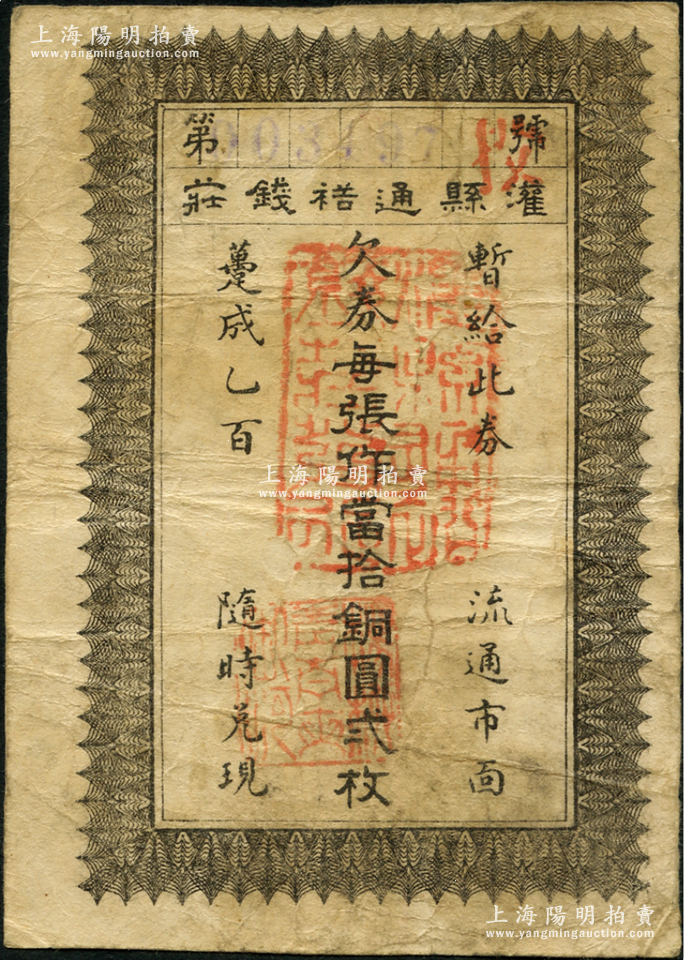 上海陽明拍賣
www.yangmingauction.com
第 號
灌縣通裕錢莊
暫給此券 流通市面
欠券每張作當拾銅圓弍枚
躉成乙百 隨時兌現
上海陽明拍賣
www.yangmingauction.com
上海陽明拍賣
www.yangmingauction.com